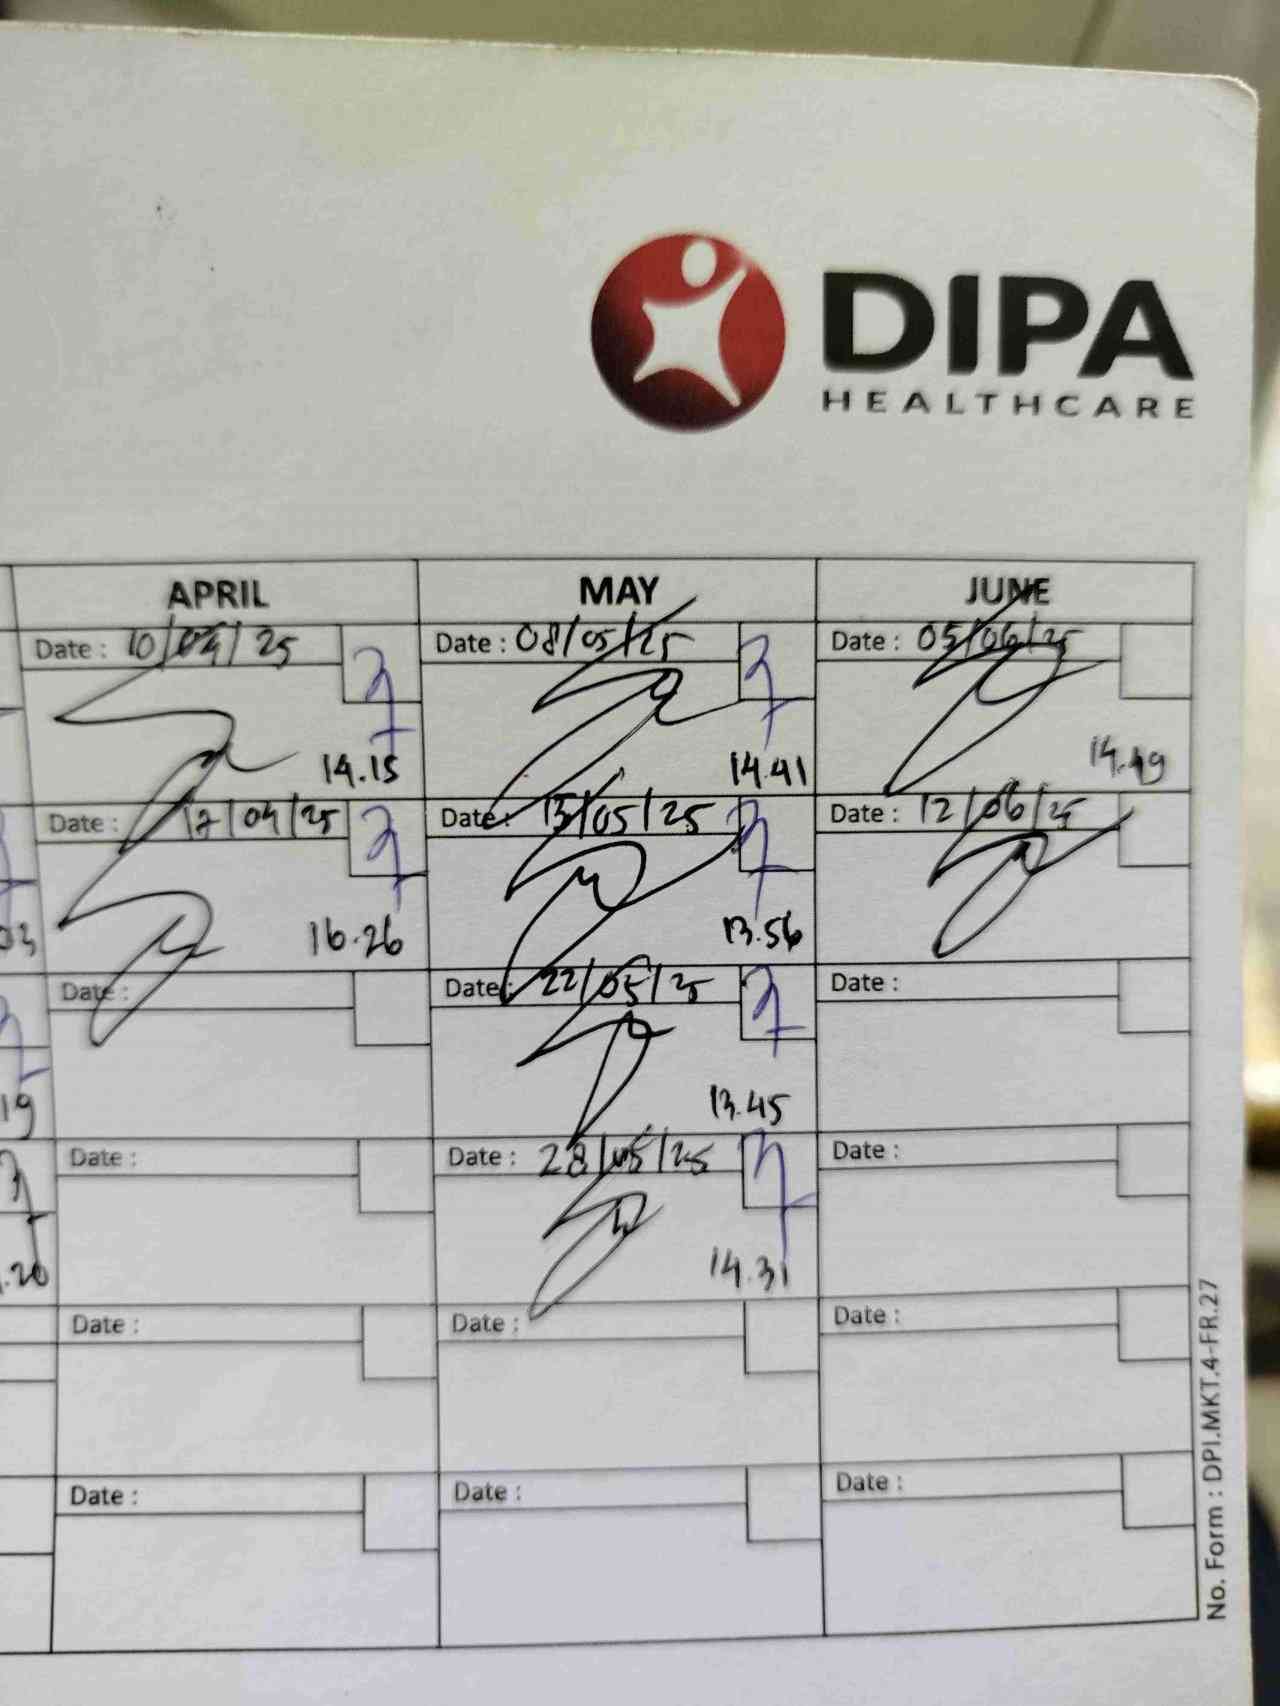 DIPA
HEALTHCARE
APRIL MAY JUNE
Date : 10/04/25 Date : 08/05/25 Date : 05/06/25
14.15 14.41 14.49
Date : 17/04/25 Date : 15/05/25 Date : 12/06/25
03 16.26 13.56
Date : Date : 22/05/25 Date :
19 13.45
Date : Date : 28/05/25 Date :
.20 14.31
Date : Date : Date :
Date : Date : Date :
No. Form : DPI.MKT.4-FR.27